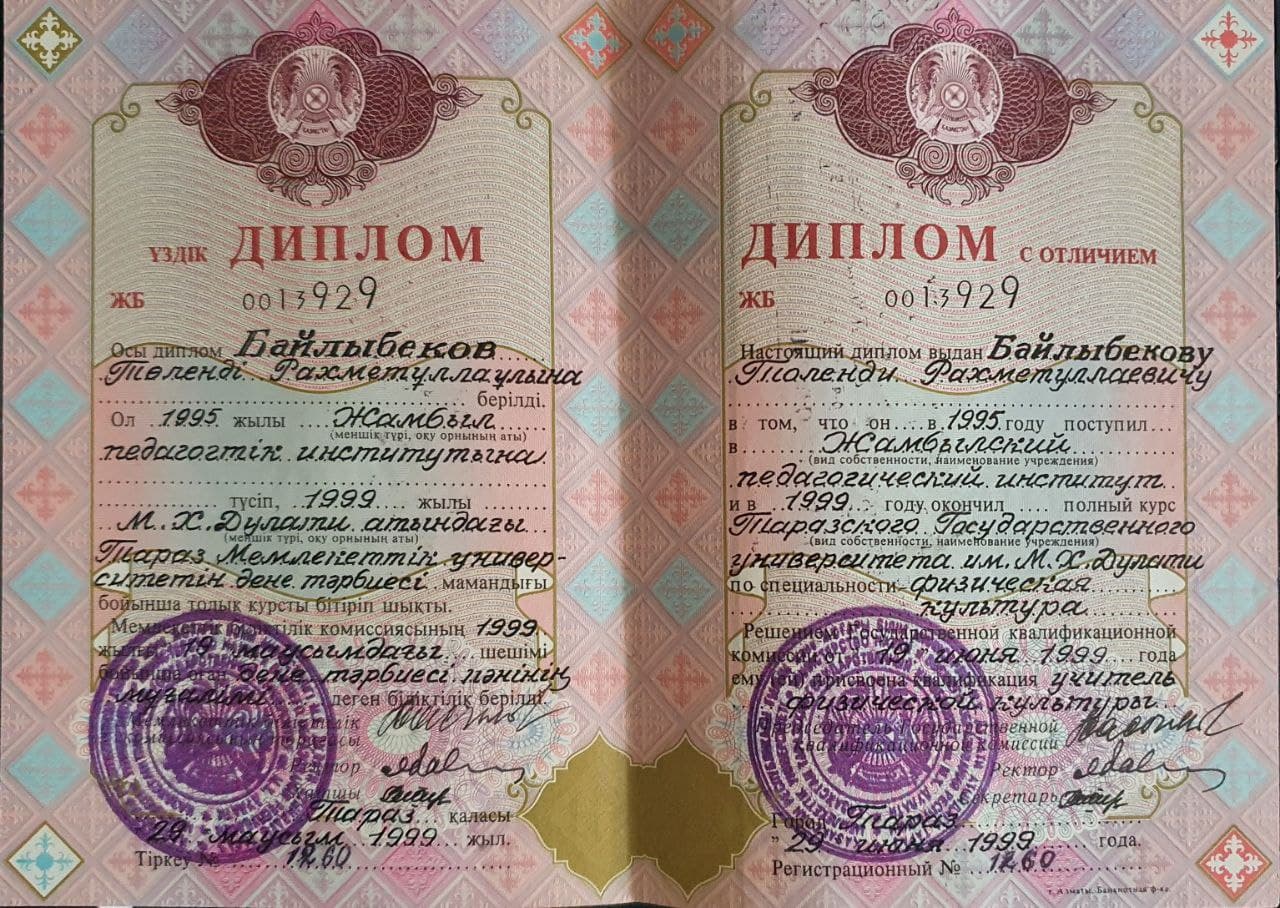 ҚАЗАҚСТАН
ҮЗДІК ДИПЛОМ
ЖБ 0013929
Осы диплом Байлыбеков
Төленді Рахметуллаұлына
берілді.
Ол 1995 жылы Жамбыл
(меншік түрі, оқу орнының аты)
педагогтік институтына
түсіп, 1999 жылы
М.Х.Дулати атындағы
(меншік түрі, оқу орнының аты)
Тараз Мемлекеттік универ-
ситетін дене тәрбиесі мамандығы
бойынша толық курсты бітіріп шықты.
Мемлекеттік біліктілік комиссиясының 1999
жылғы 19 маусымдағы шешімі
бойынша оған дене тәрбиесі пәнінің
мұғалімі деген біліктілік берілді.
Мемлекеттік біліктілік
комиссиясының төрағасы
Ректор
Хатшы
Тараз қаласы
29 маусым 1999 жыл.
Тіркеу № 1260
ҚАЗАҚСТАН
ДИПЛОМ С ОТЛИЧИЕМ
ЖБ 0013929
Настоящий диплом выдан Байлыбекову
Толенди Рахметуллаевичу
в том, что он в 1995 году поступил
в Жамбылский
(вид собственности, наименование учреждения)
педагогический институт
и в 1999 году окончил полный курс
Таразского Государственного
(вид собственности, наименование учреждения)
университета им. М.Х.Дулати
по специальности физическая
культура
Решением Государственной квалификационной
комиссии от 19 июня 1999 года
ему (ей) присвоена квалификация учитель
физической культуры
Председатель Государственной
квалификационной комиссии
Ректор
Секретарь
Город Тараз
" 29 июня 1999 года.
Регистрационный № 1260
г. Алматы. Банкнотная ф-ка.